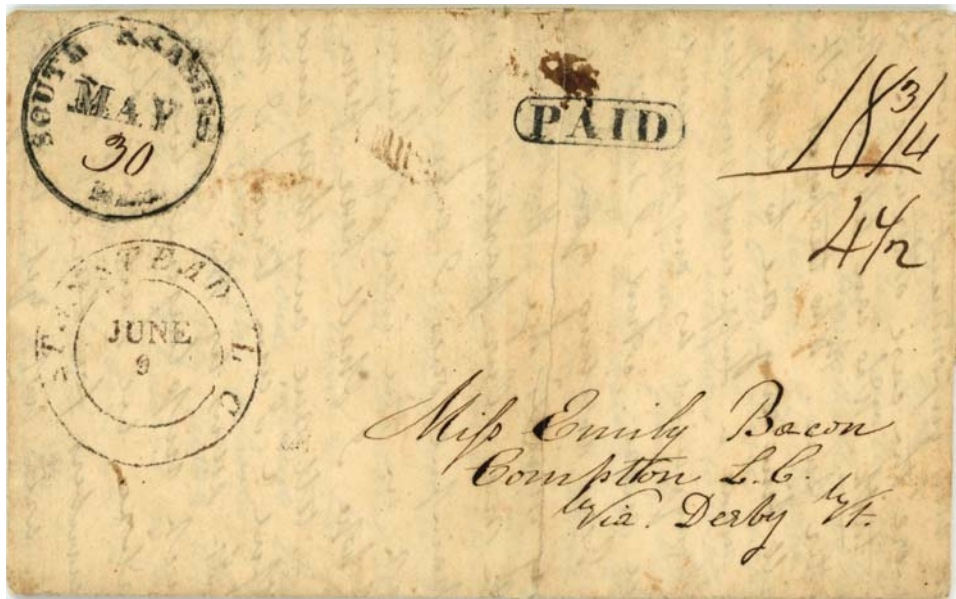 SOUTH
MAY
30
PAID
18 3/4
4 1/2
STANSTEAD L C
JUNE
9
Miss Emily Bacon
Compton L. C.
Via. Derby Vt.